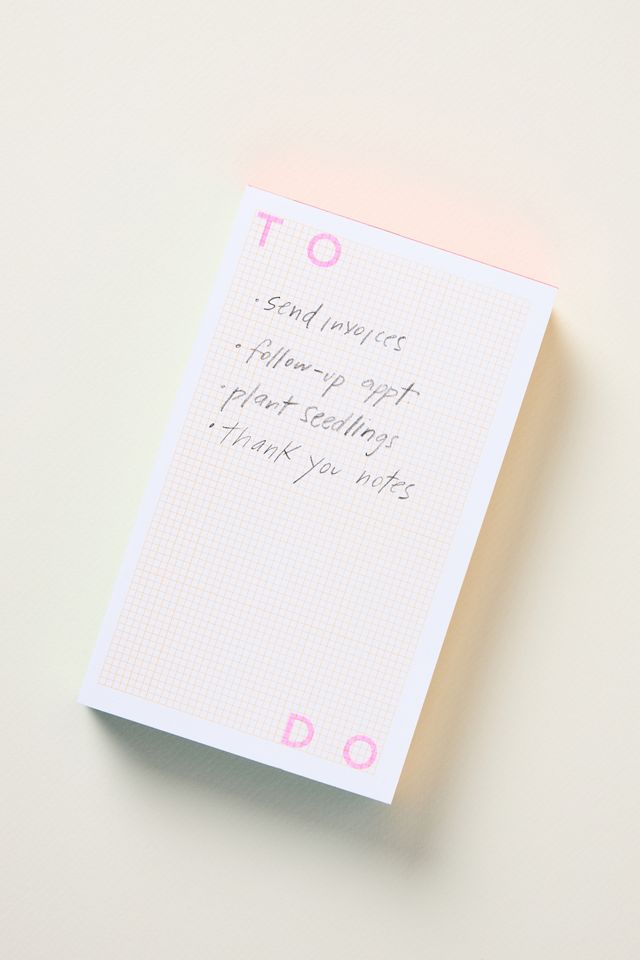 TO
· send invoices
· follow-up appt
· plant seedlings
· thank you notes
DO